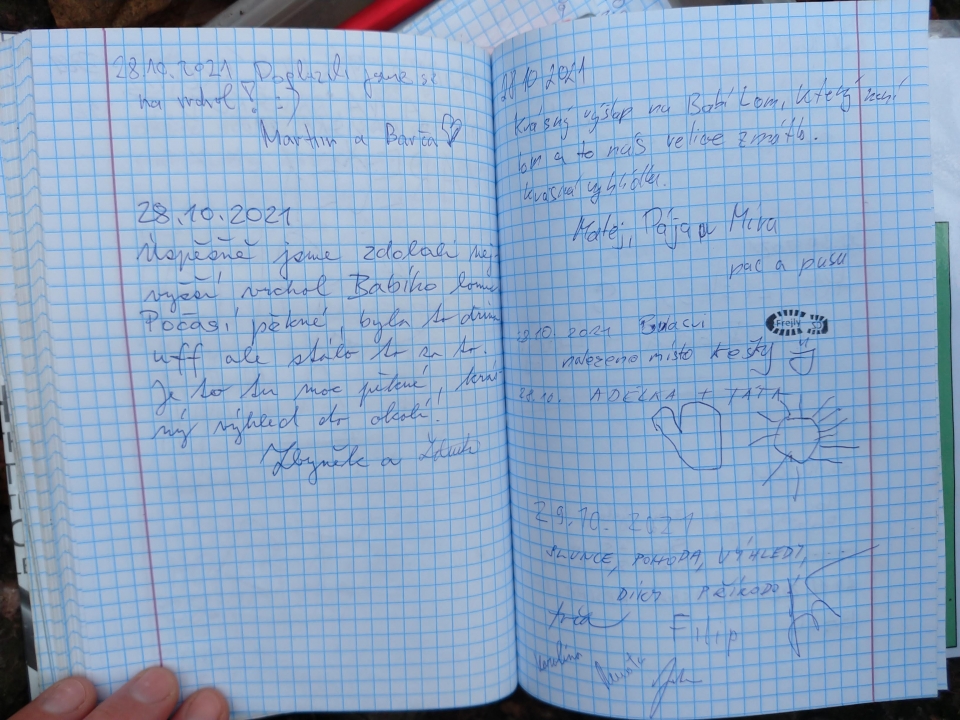 28.10.2021 jsme se
na vrchol! :)
Martin a Barča
28.10.2021
Úspěšně jsme zdolali nej-
vyšší vrchol Babího lomu.
Počasí pěkné, byla to dřina
uff ale stálo to za to.
Je to tu moc pěkné, krás
ný výhled do okolí!
Zbyněk a
28.10.2021
Krásný výšlap na Babí Lom, který není
lom a to nás velice zmátlo.
Krásná vyhlídka.
Matěj, Pája a Míra
pac a pusu
28.10.2021
Frejly
nalezeno místo
28.10. ADÉLKA + TÁTA
29.10.2021
SLUNCE, POHODA, VÝHLEDY,
DÍKY PŘÍRODO!
Filip
Karolína